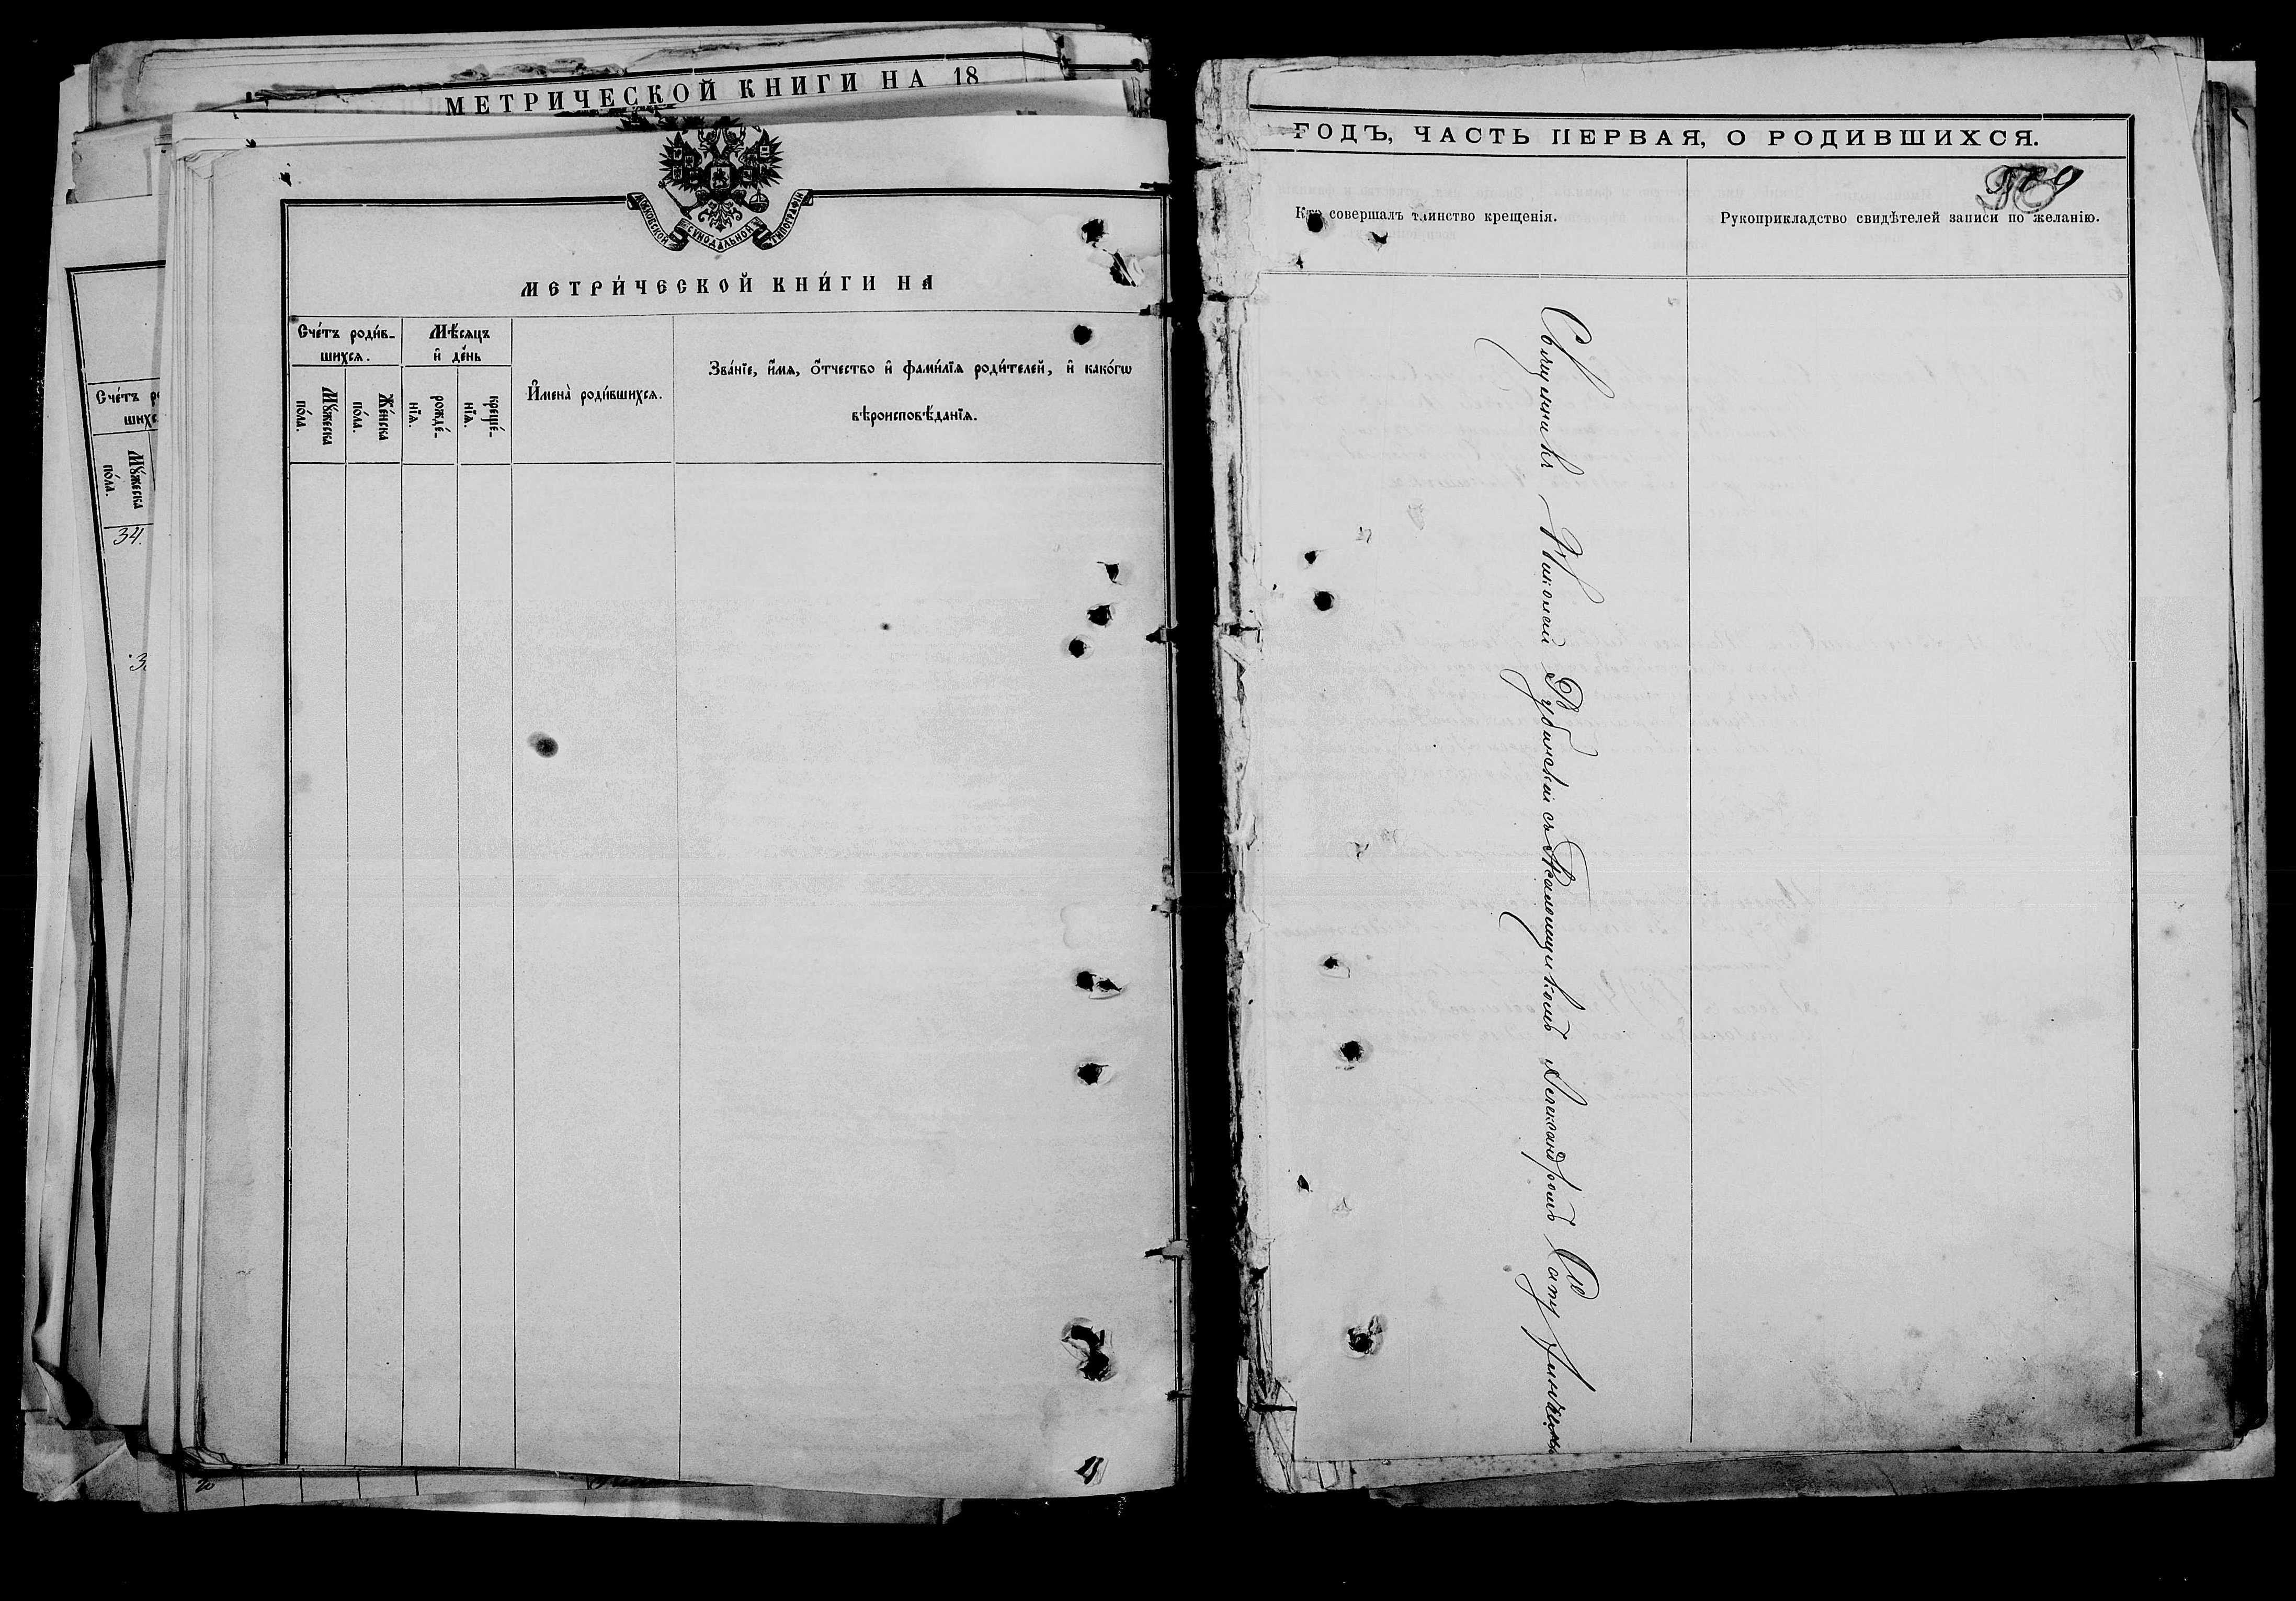 МЕТРИЧЕСКОЙ КНИГИ НА 18
МОСКОВСКОЙ СѴНОДАЛЬНОЙ ТИПОГРАФІИ
МЕТРИ́ЧЕСКОЙ КНИ́ГИ НА
Сче́тъ роди́в-
шихсѧ.
Мѣ́сѧцъ
и҆ де́нь
И҆мена̀ роди́вшихсѧ.
Зва́нїе, и҆́мѧ, ѻ҆́тчество и҆ фами́лїѧ роди́телей, и҆ како́гѡ
вѣроисповѣ́данїѧ.
Мꙋ́жеска
по́ла.
Же́нска
по́ла.
рожде́-
нїѧ.
креще́-
нїѧ.
Сче́тъ
шихс
Мꙋ́жеска
по́ла.
34.
ГОДЪ, ЧАСТЬ ПЕРВАЯ, О РОДИВШИХСЯ.
Кто совершалъ таинство крещенія.
Рукоприкладство свидѣтелей записи по желанію.
Священникъ Николай Рубинскій съ Псаломщикомъ Александромъ